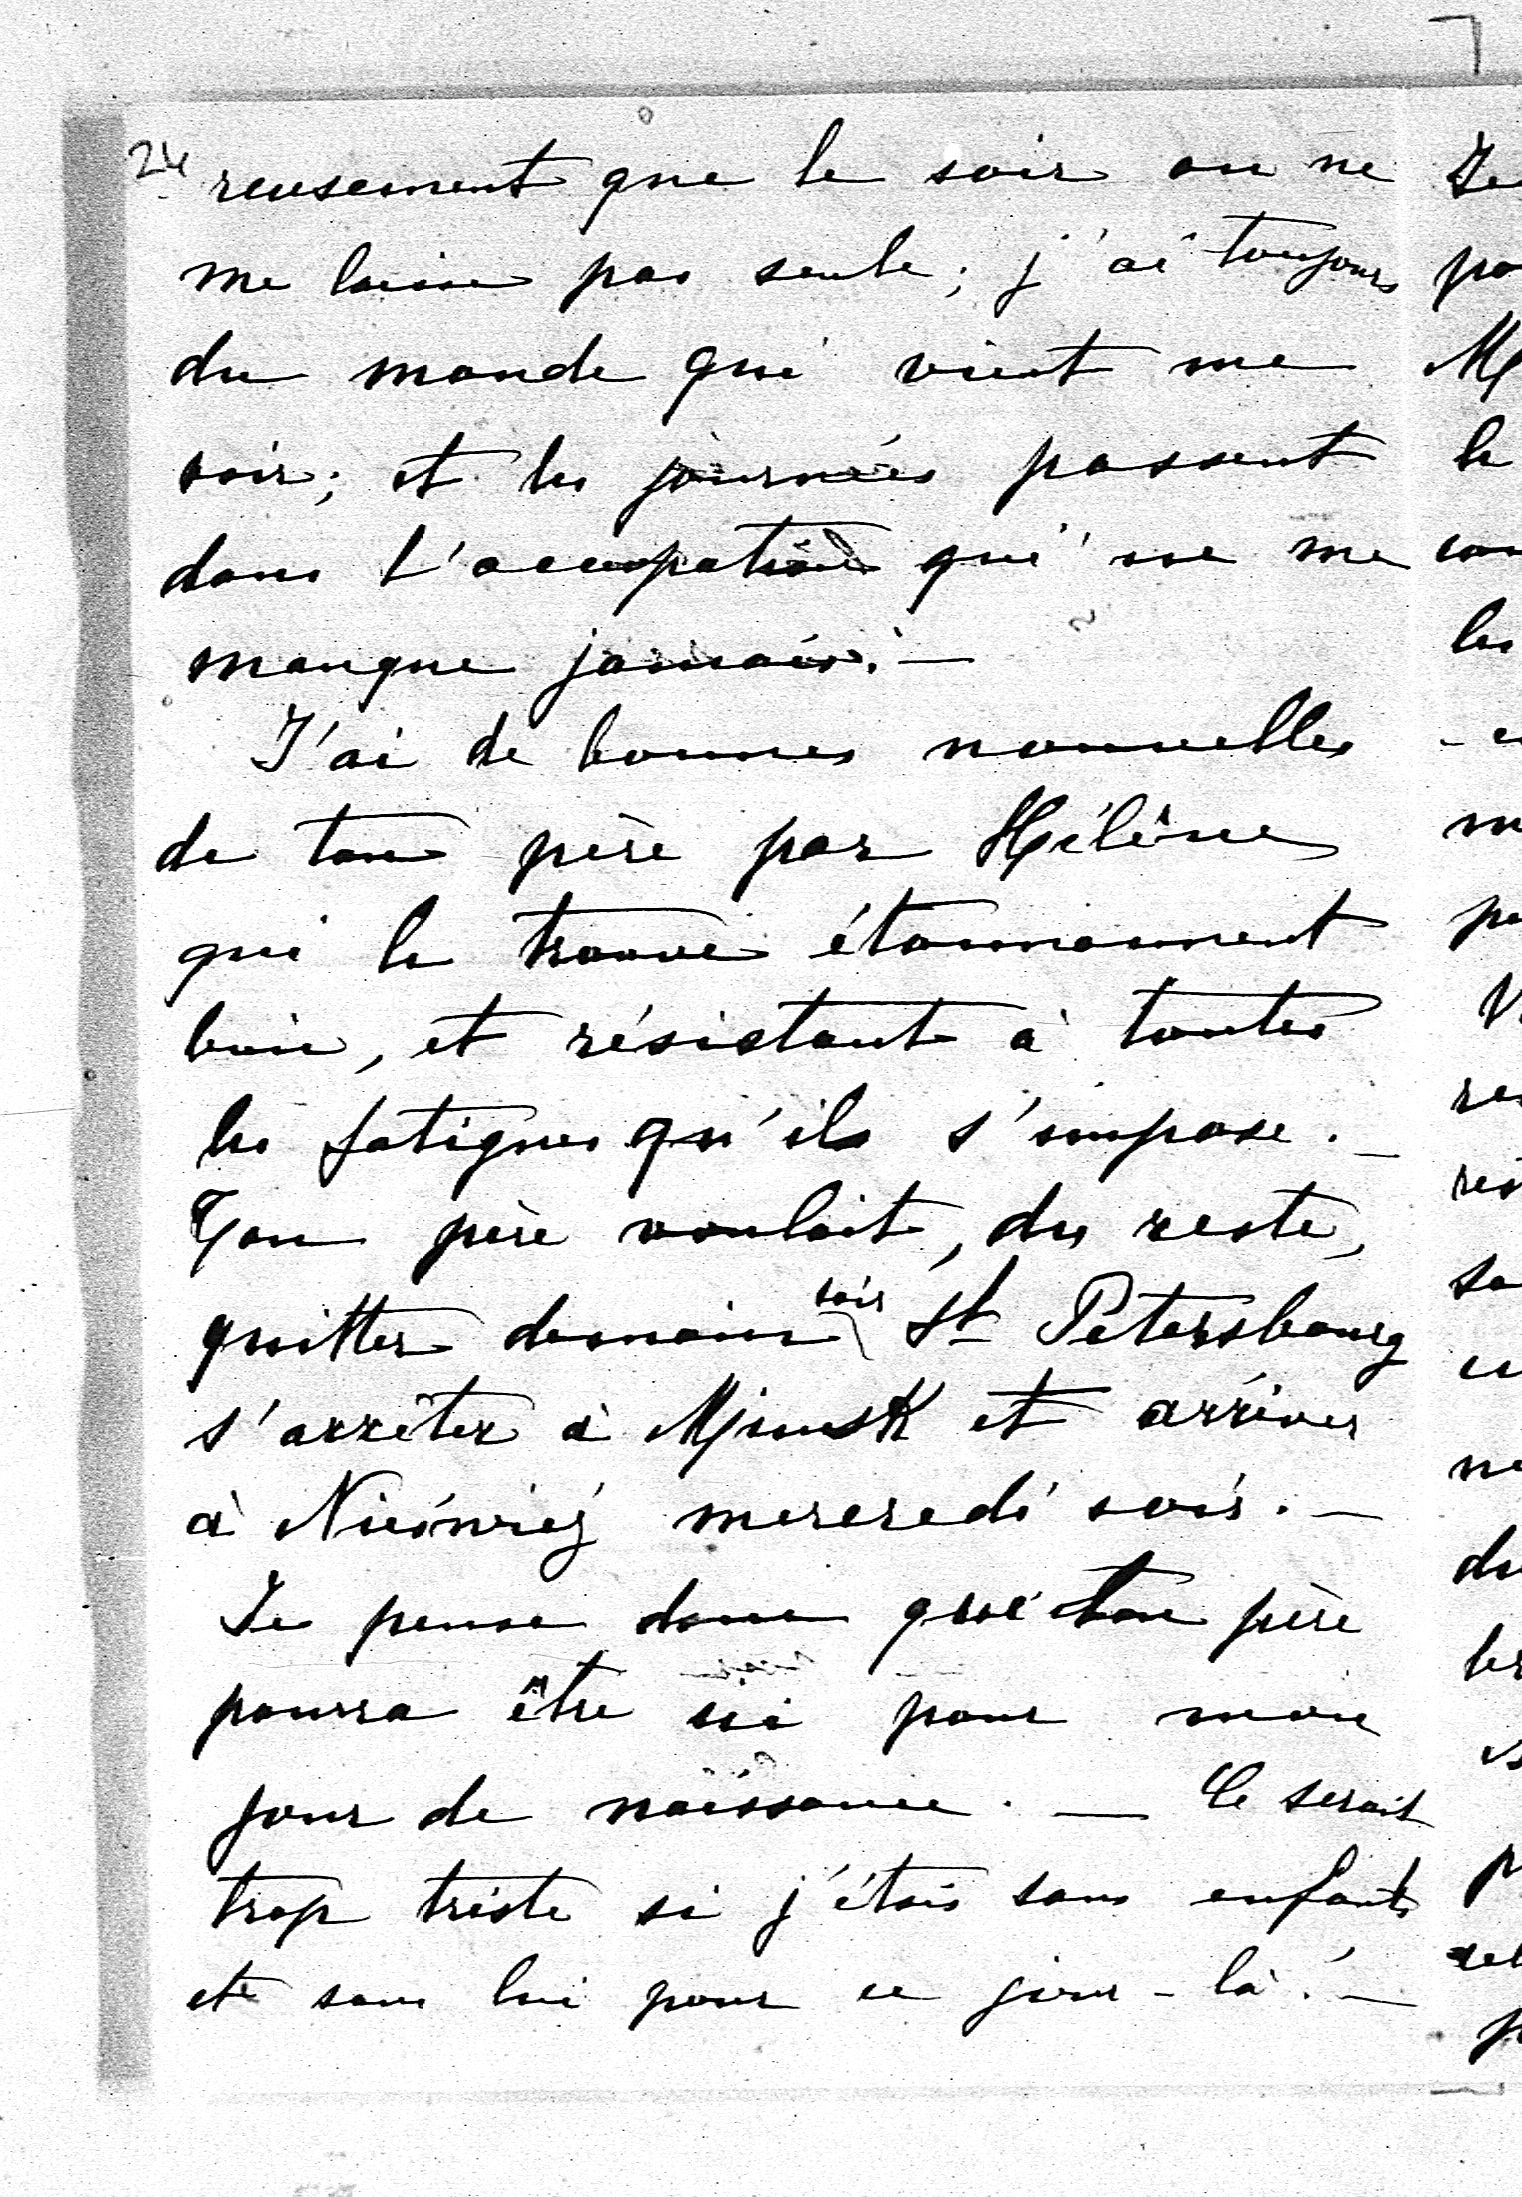 24
reusement que le soir on ne
me laisse pas seule; j'ai toujours
du monde qui vient me
voir; et les journées passent
dans l'occupation qui ne me
manque jamais. —
J'ai de bonnes nouvelles
de ton père par Hélène
qui le trouve étonnamment
bien, et résistant à toutes
les fatigues qu'il s'impose. —
Ton père voulait, du reste,
quitter demain soir St Petersbourg
s'arrêter à Minsk et arriver
à Nieśwież mercredi soir. —
Je pense donc que ton père
pourra être ici pour mon
jour de naissance. — Ce serait
trop triste si j'étais sans enfants
et sans lui pour ce jour-là! —